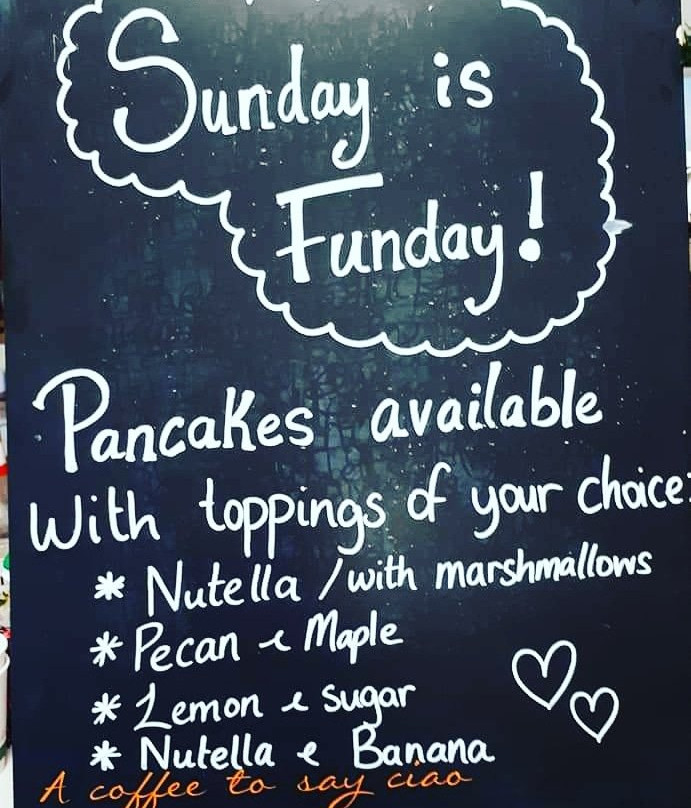 Sunday is
Funday!
Pancakes available
With toppings of your choice:
* Nutella / with marshmallows
* Pecan & Maple
* Lemon & sugar
* Nutella & Banana
A coffee to say ciao